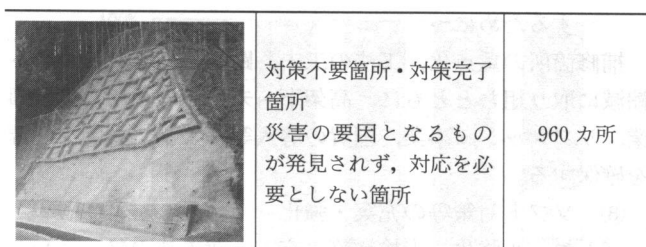 対策不要箇所・対策完了
箇所
災害の要因となるもの
が発見されず，対応を必
要としない箇所
960 カ所